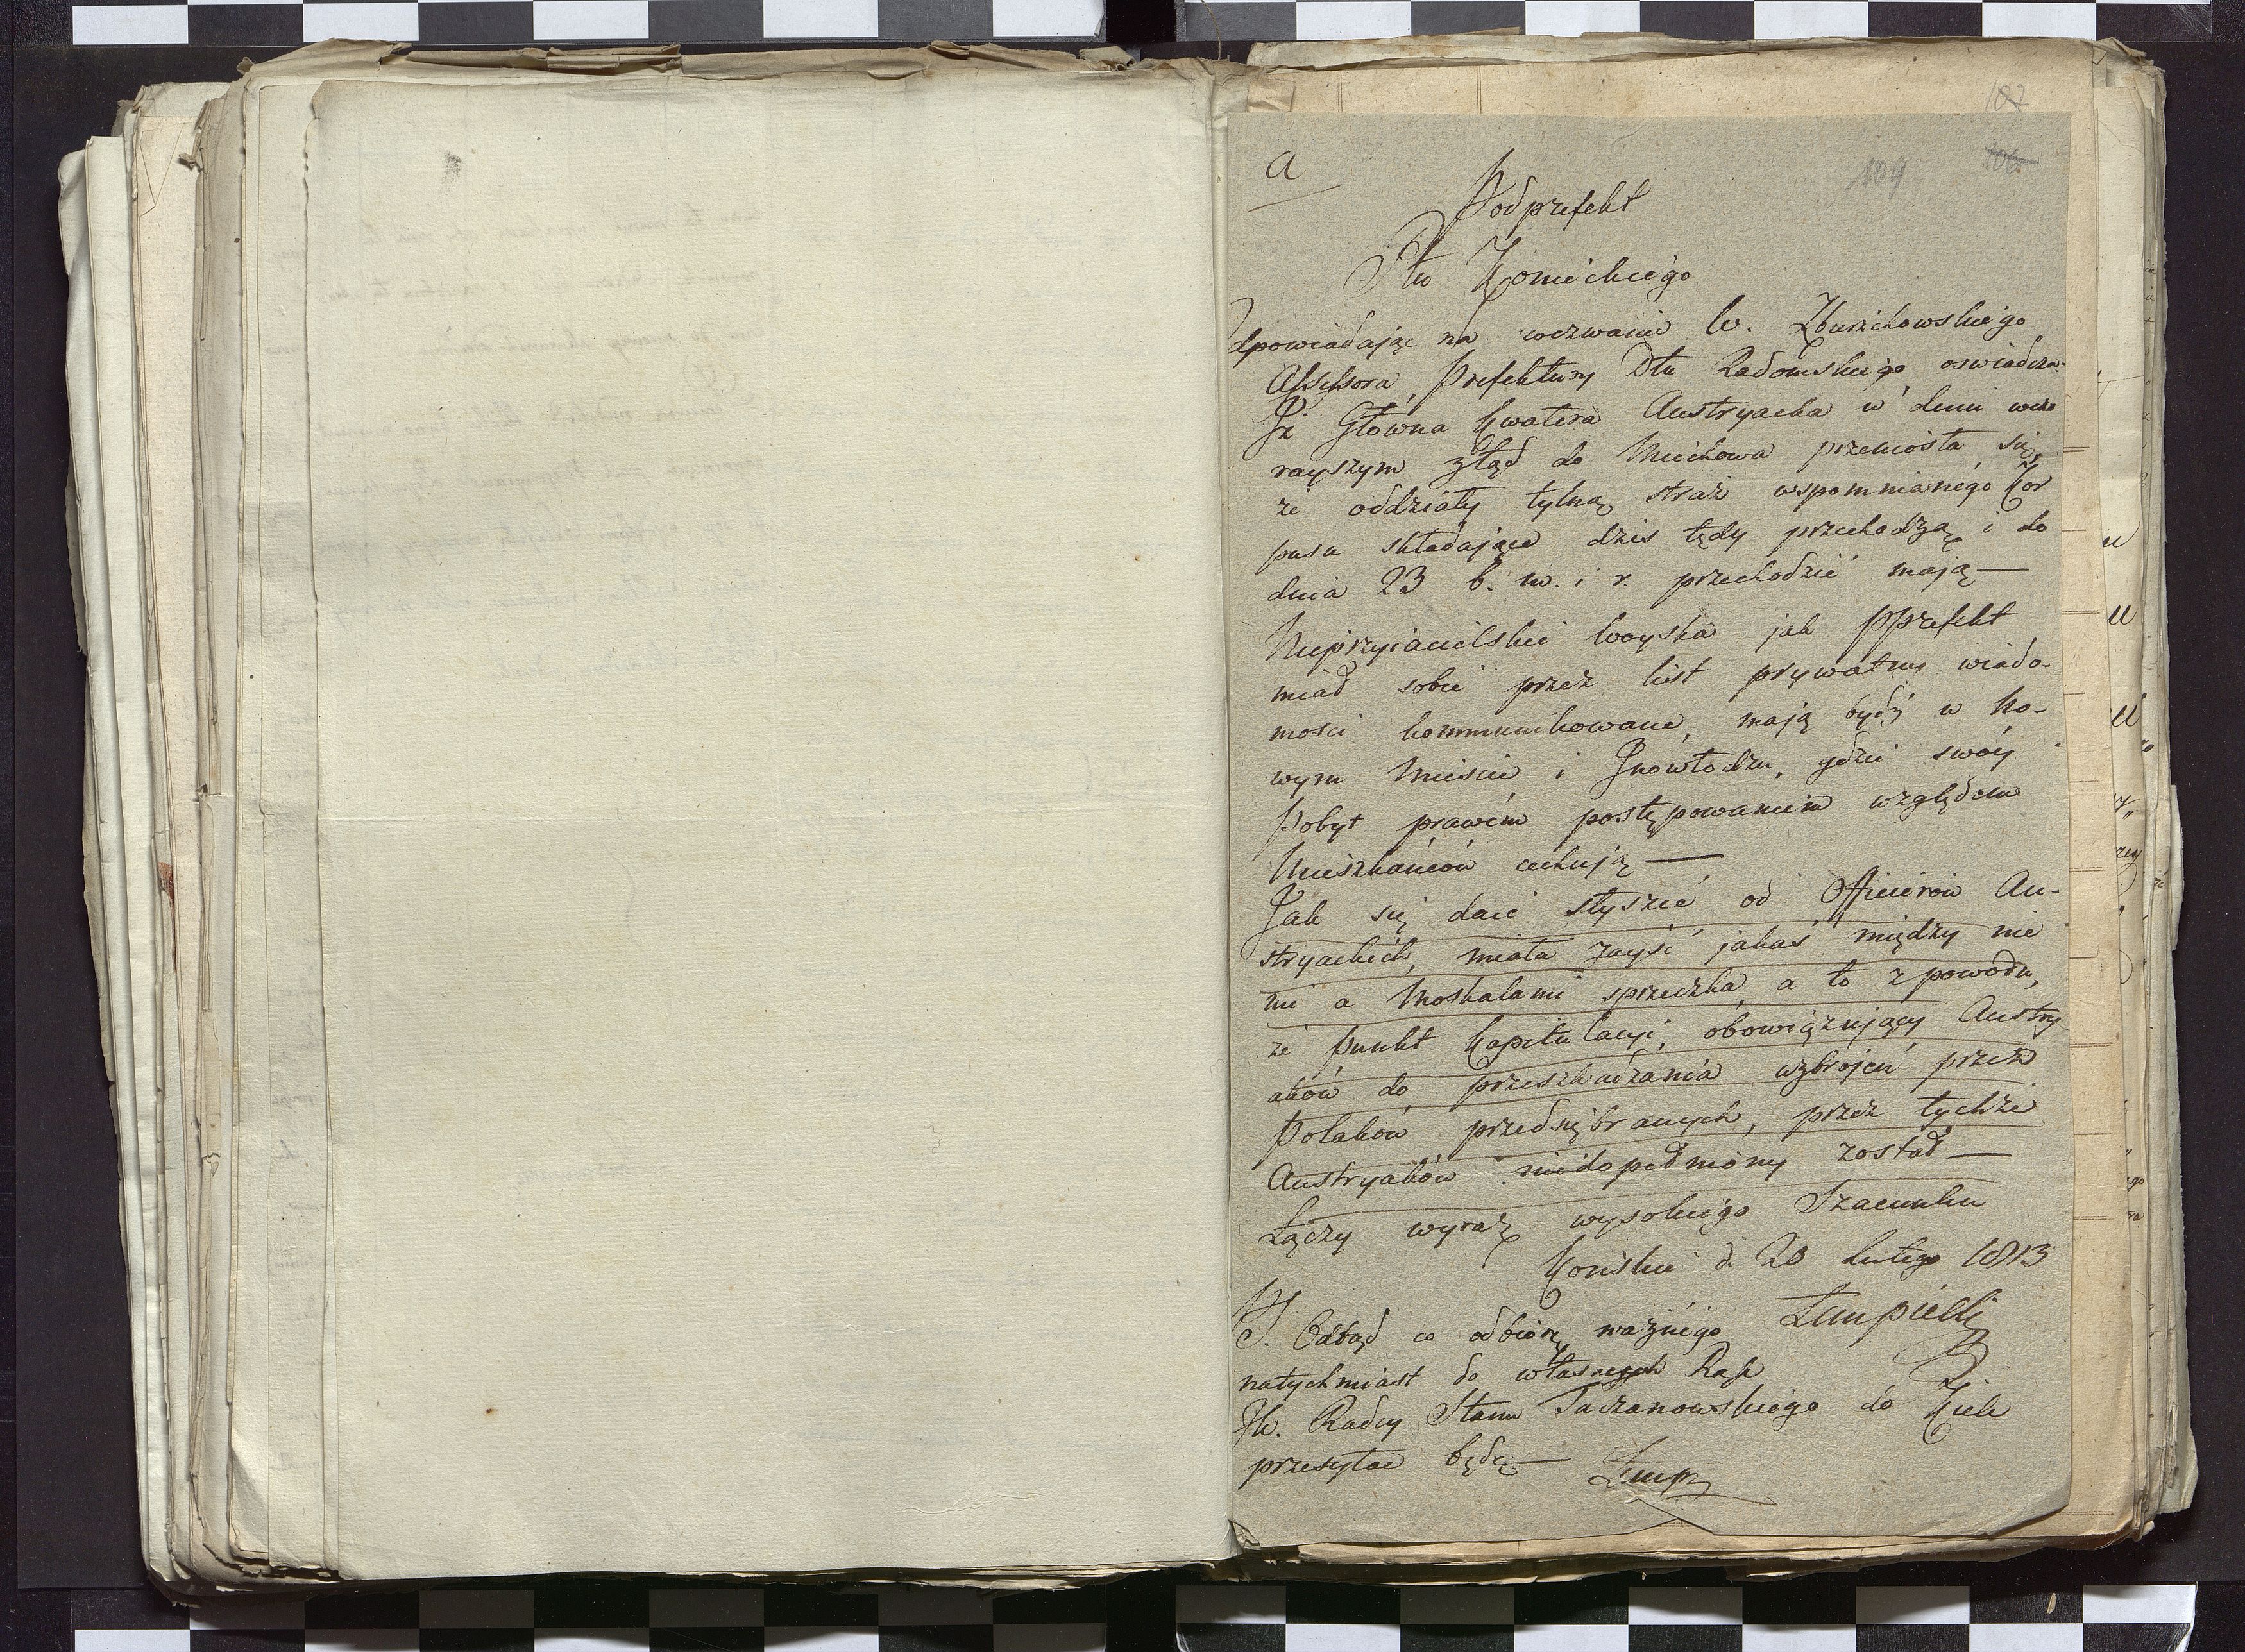 107
a
109
106
Podprefekt
Ptu Konieckiego
Odpowiadając na wezwanie W.
Assessora Prefektury Dtu Radomskiego oswiadcza
Iż Główna Kwatera Austryacka w dniu wczo
rayszym ztąd do Miechowa przeniosła się,
że oddziały tylną straż wspomnianego Kor
pusu składające dzis tędy przechodzą i do
dnia 23 b. m. i r. przechodzić mają —
Nieprzyiacielskie woyska jak PPrefekt
miał sobie przez list prywatny wiado-
mosci kommunikowane, mają bydź w No-
wym Miescie i Inowłodzu, gdzie swóy
Pobyt prawem postępowaniem względem
Mieszkańców cechują —
Jak się daie słyszeć od Officierów Au-
stryackich, miała zayść jakaś między nie
mi a Moskalami sprzeczka, a to z powodu,
że punkt Kapitulacyi, obowiązujący Austry
aków do przeszkadzania uzbrojeń przez
Polaków przedsiębranych, przez tychże
Austryaków niedopełniony został —
Łączy wyraz wysokiego Szacunku
Końskie d. 20 Lutego 1813
Lempicki
PS. Odtąd co odbiorę ważnego
natychmiast do własnych Rąk
JW. Radcy Stanu Taczanowskiego do Kielc
przesyłać będę — Lemp